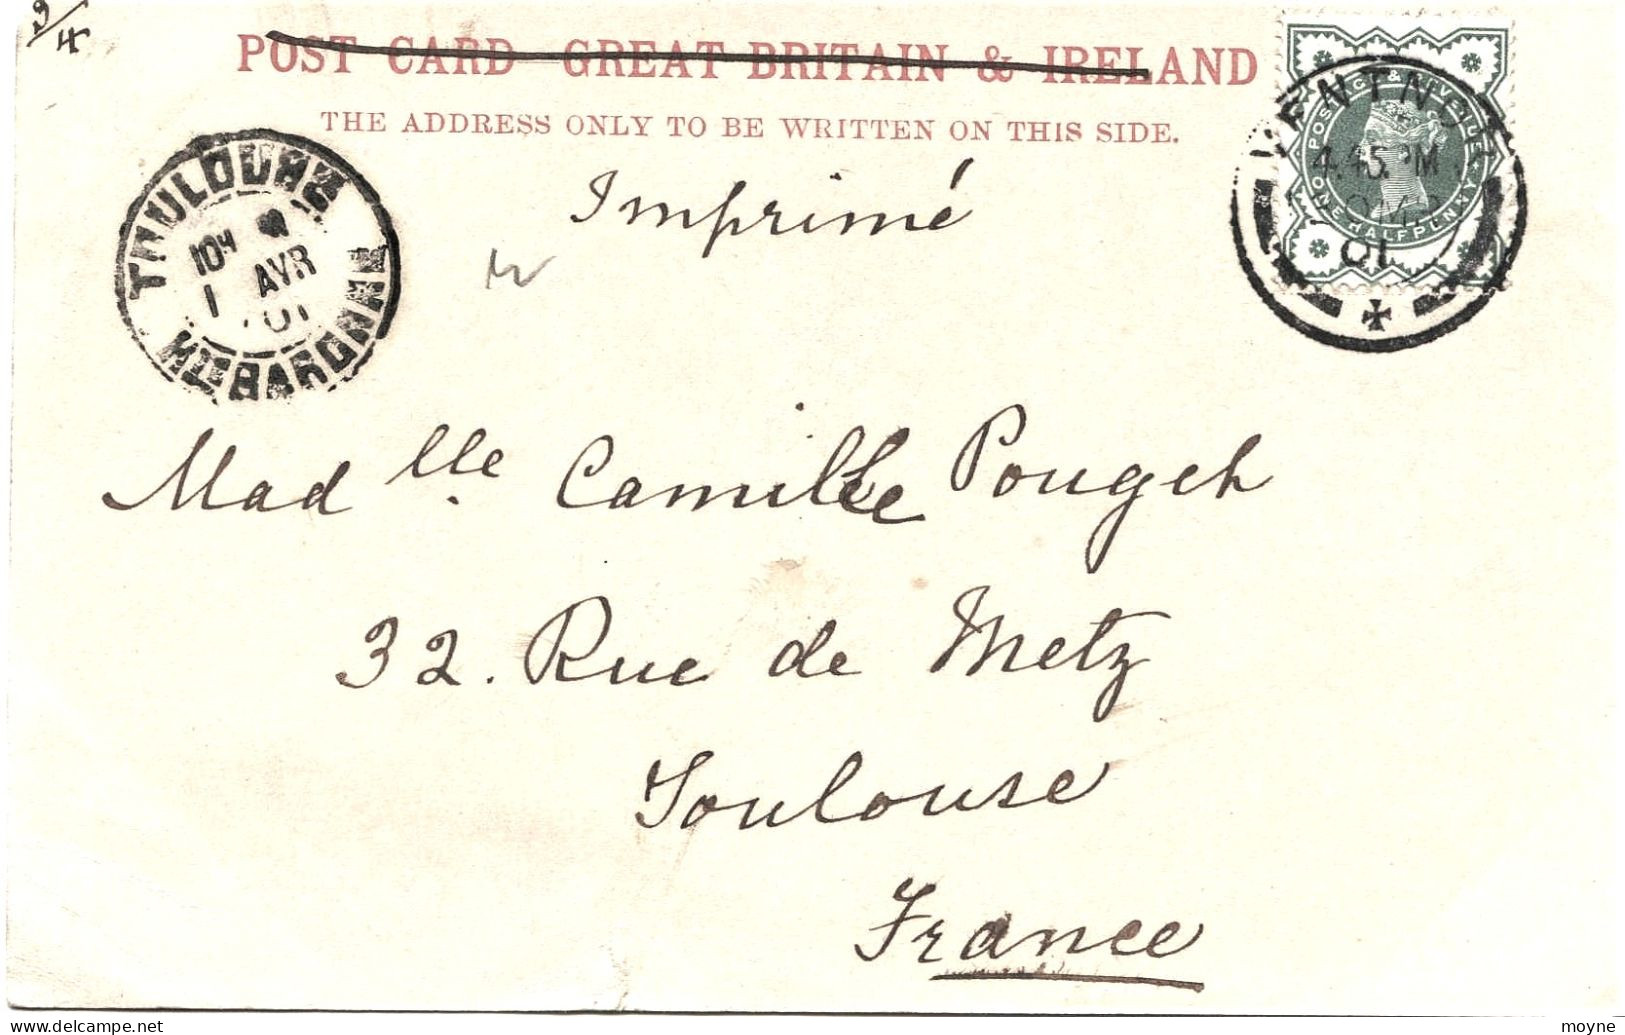 9/4
POST CARD GREAT BRITAIN & IRELAND
THE ADDRESS ONLY TO BE WRITTEN ON THIS SIDE.
Imprimé
POSTAGE & REVENUE
ONE HALFPENNY
VENTNOR
4.45 PM
01
10H
AVR
01
Mad lle Camille Pouget
32. Rue de Metz
Toulouse
France
moyne